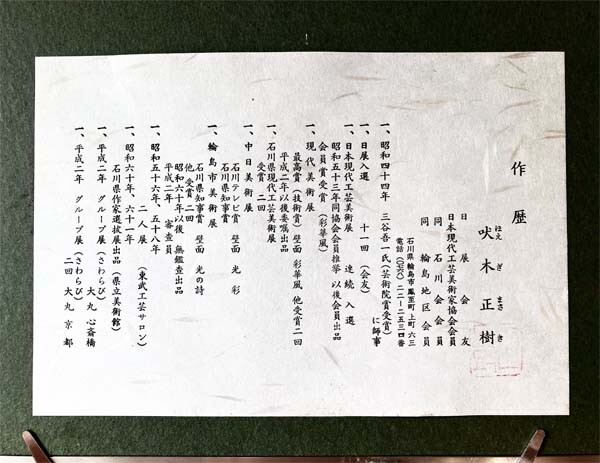 作歴
はえ ぎ まさ き
吠木正樹
日展会友
日本現代工芸美術家協会会員
同 石川会会員
同 輪島地区会員
石川県輪島市鳳至町上町六三
電話(〇七六八)二二-二五三四番
一、昭和四十四年 三谷吾一氏(芸術院賞受賞)に師事
一、日展入選 十一回(会友)
一、日本現代工芸美術展 連続入選
昭和五十三年同協会会員推挙 以後会員出品
会員賞受賞(彩華風)
一、現代美術展
最高賞(技術賞)壁面 彩華風 他受賞二回
平成二年以後委嘱出品
一、石川県現代工芸美術展
受賞 二回
一、中日美術展
石川テレビ賞 壁面 光彩
石川県知事賞
一、輪島市美術展
石川県知事賞 壁面 光の詩
他受賞二回
昭和六十年以後 無鑑査出品
平成二年 審査員
一、昭和五十六年、五十八年
二人展(東武工芸サロン)
一、昭和六十年、六十一年
石川県作家選抜展出品(県立美術館)
一、平成二年 グループ展(さわらび)
大丸 心斎橋
一、平成二年 グループ展(さわらび)
二回 大丸 京都